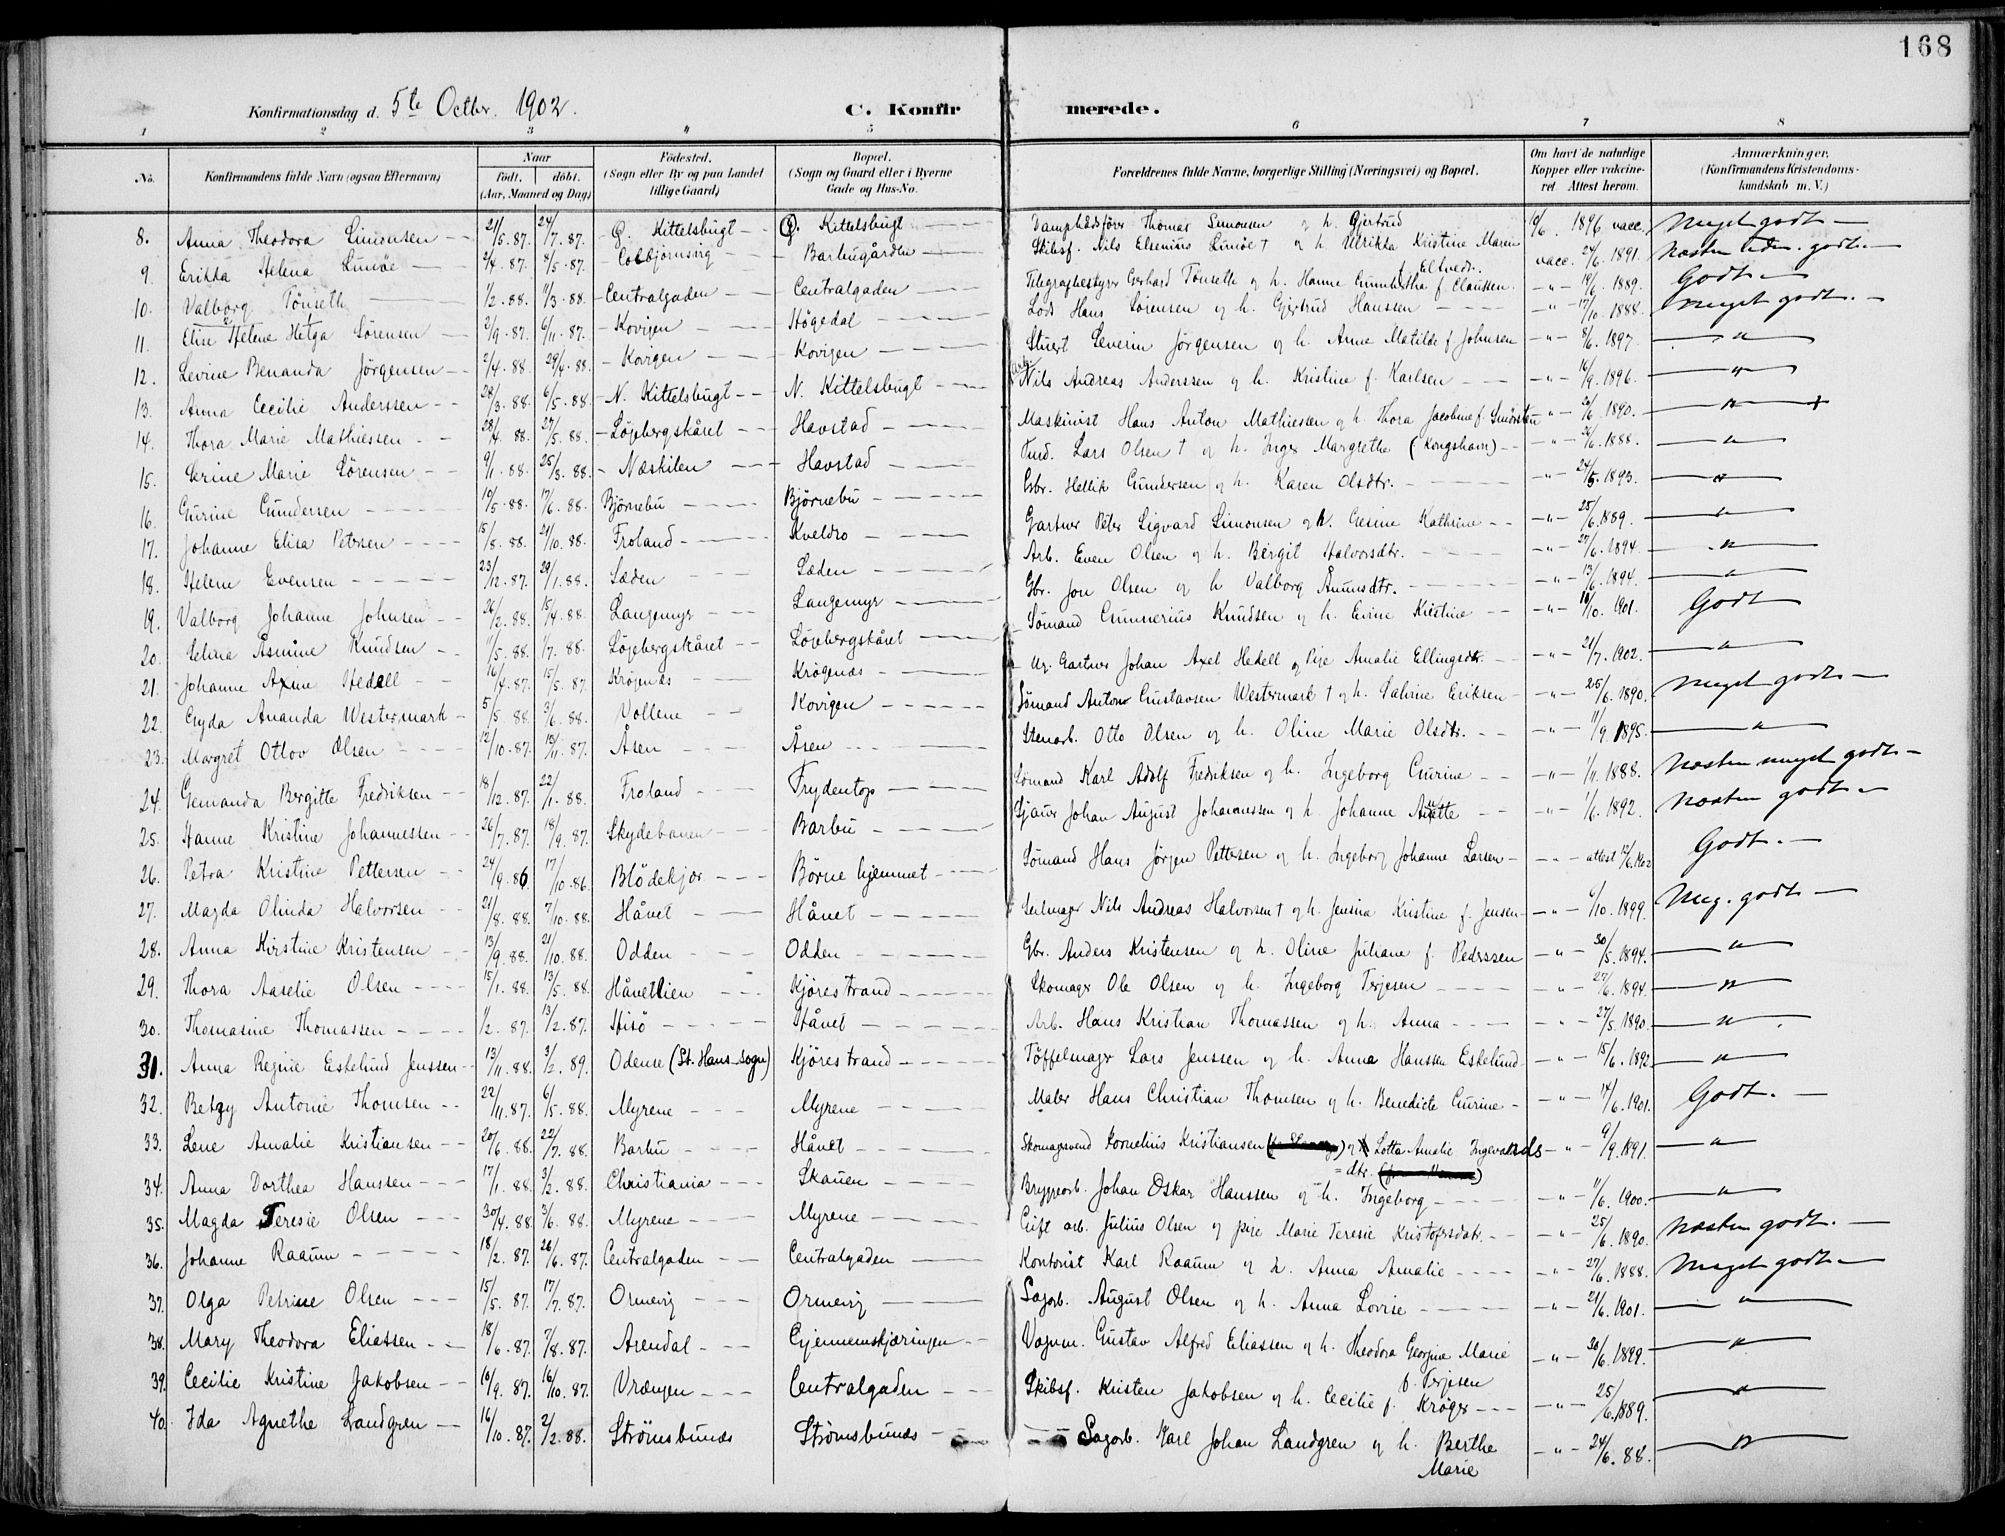 168
Konfirmationsdag d. 5te Octbr. 1902.
C. Konfirmerede.
1 2 3 4 5 6 7 8
No. Konfirmandens fulde Navn (ogsaa Efternavn) Naar født. døbt. (Aar, Maaned og Dag) Fødested. (Sogn eller By og paa Landet tillige Gaard) Bopæl. (Sogn og Gaard eller i Byerne Gade og Hus-No. Forældrenes fulde Navne, borgerlige Stilling (Næringsvei) og Bopæl. Om havt de naturlige Kopper eller vakcineret. Attest herom. Anmærkninger. (Konfirmandens Kristendomskundskab m. V.)
8. Anna Theodora Simonsen 21/5. 87. 24/7. 87. G. Kittelsbugt G. Kittelsbugt Dampbådsfører Thomas Simonsen og h. Gjertrud 10/6. 1896 vacc. Meget godt
9. Erikka Helena Simöe 2/4. 87. 8/5. 87. Colbjørnsvig Barbugården Skibsf. Nils Elsenius Simöe † og h. Ulrikka Kristine Maren f. Eltvedt. vacc. 24/6. 1891. godt.
10. Valborg Tönseth 1/2. 88. 11/3. 88. Centralgaden Centralgaden Telegrafbestyrer Gerhard Tönseth og h. Hanne f. Claussen. -"- 19/6. 1889. Godt
11. Elise Helene Helga Sörensen 2/9. 87. 6/11. 87. Kovigen Högedal Lods Hans Sörensen og h. Gjertrud Hanssen -"- 17/10. 1888. meget godt.
12. Levine Benanda Jørgensen 2/4. 88. 29/4. 88. Kovigen Kovigen Stuert Severin Jørgensen og h. Anne Matilde f. Johnsen -"- 8/6. 1897. -"-
13. Anna Cecilie Anderssen 28/3. 88. 6/5. 88. N. Kittelsbugt N. Kittelsbugt Arb. Nils Andreas Anderssen og h. Kristine f. Karlsen -"- 16/9. 1896. -"-
14. Thora Marie Mathiessen 28/4. 88. 27/5. 88. Løjebergskåret Havstad Maskinist Hans Anton Mathiesen og h. Thora Jacobine f. -"- 26/6. 1890. -"-
15. Serine Marie Sörensen 9/1. 88. 25/3. 88. Næskilen Havstad Lars Olsen † og h. Inger Margrethe (Kongshavn) -"- 26/6. 1888. -"-
16. Gurine Gundersen 10/5. 88. 17/6. 88. Bjørnebu Bjørnebu Gbr. Hellik Gundersen og h. Karen Olsdtr. -"- 24/5. 1893. -"-
17. Johanne Elisa Petersen 15/8. 88. 21/10. 88. Froland Kveldro Gartner Peter Sigvard Simonsen og h. Gesine Kathrine -"- 25/6. 1889. -"-
18. Helene Evensen 23/12. 87. 29/1. 88. Sæden Sæden Arb. Even Olsen og h. Bergit Halvorsdtr. -"- 27/6. 1894. -"-
19. Valborg Johanne Johnsen 26/2. 88. 15/4. 88. Langemyr Langemyr Gbr. Jon Olsen og h. Valborg Åmundsdtr. -"- 13/6. 1894. -"-
20. Selina Åsmine Knudsen 11/5. 88. 1/7. 88. Løjebergskåret Løjebergskåret Sømand Gunnerius Knudsen og h. Evine Kirstine -"- 10/10. 1901. Godt
21. Johanne Axine Hedell 16/4. 87. 15/5. 87. Krøgenæs Krøgenæs Ug. Gartner Johan Axel Hedell og Pige Amalie Ellingsdtr. -"- 21/7. 1902. -"-
22. Gyda Ananda Westermark 5/5. 88. 3/6. 88. Vollene Kovigen Sømand Anton Gustavsen Westermark † og h. Cathrine Eriksen -"- 25/6. 1890. Meget godt
23. Margret Otlov Olsen 12/10. 87. 13/11. 87. Åsen Åsen Stenarb. Otto Olsen og h. Oline Marie Olsdtr. -"- 11/9. 1895. -"-
24. Gemanda Bergitte Fredriksen 18/12. 87. 22/1. 88. Froland Frydentop Sømand Karl Adolf Fredriksen og h. Ingeborg Gurine -"- 1/11. 1888. Næsten meget godt
25. Hanne Kristine Johannessen 26/7. 87. 18/9. 87. Skydebanen Barbu Johan August Johannessen og h. Johanne Anette -"- 1/6. 1892. Næsten godt
26. Petra Kristine Pettersen 24/9. 86 17/10. 86. Blödekjær Börnehjemmet Sømand Hans Jørgen Pettersen og h. Ingeborg Johanne Larsen -"- attest 12/6. 1902 Godt.
27. Magda Olinda Halvorsen 21/8. 88. 7/10. 88. Håvet Håvet Seilmager Nils Andreas Halvorsen † og h. Jensina Kristine f. Jensen -"- 6/10. 1899. Meg. godt
28. Anna Kirstine Kristensen 13/9. 88. 21/10. 88. Odden Odden Gbr. Anders Kristensen og h. Oline Juliane f. Pederssen -"- 30/5. 1894. -"-
29. Thora Aaselie Olsen 15/1. 88. 13/5. 88. Håvetlien Kjørestrand Skomager Ole Olsen og h. Ingeborg Terjesen -"- 27/6. 1894. -"-
30. Thomasine Thomassen 1/2. 87. 13/2. 87. Hisö Håvet Arb. Hans Kristian Thomassen og h. Anna -"- 27/5. 1890. -"-
31. Anna Regine Eskelund Jenssen 13/11. 88. 3/2. 89. Odense (St. Hans sogn) Kjørestrand Töffelmager Lars Jenssen og h. Anna Hanssen Eskelund -"- 15/6. 1892. -"-
32. Betzy Antonie Thomsen 22/11. 87. 6/5. 88. Myrene Myrene Maler Hans Christian Thomsen og h. Benedicte Gurine -"- 14/6. 1901. Godt.
33. Lene Amalie Kristiansen 20/6. 88. 22/7. 88. Barbu Håvet Skomagersvend Kornelius Kristiansen og Lotta Amalie Ingevalds=dtr. -"- 9/9. 1891. -"-
34. Anna Dorthea Hanssen 17/1. 88. 3/2. 88. Christiania Skauen Bryggearb. Johan Oskar Hanssen og h. Ingeborg -"- 11/6. 1900. -"-
35. Magda Teresie Olsen 30/4. 88. 3/6. 88. Myrene Myrene Gift arb. Julius Olsen og pige Marie Teresie Kristofersdatr. -"- 25/6. 1890. Næsten godt.
36. Johanne Raaum 18/2. 87. 26/6. 87. Centralgaden Centralgaden Kontorist Karl Raaum og h. Anna Amalie -"- 27/6. 1888. Meget godt
37. Olga Petrine Olsen 15/5. 87. 17/7. 87. Ormevig Ormevig Sagarb. August Olsen og h. Anna Lovise -"- 21/6. 1901. -"-
38. Mary Theodora Eliassen 18/6. 87. 7/8. 87. Arendal Gjennemskjæringen Vognm. Gustav Alfred Eliassen og h. Theodora Georgine Marie f. Terjesen -"- 30/6. 1899. -"-
39. Cecilie Kristine Jakobsen 10/9. 87. 16/10. 87. Vrængen Centralgaden Skibsf. Kristen Jakobsen og h. Cecilie f. Krøger -"- 25/6. 1889. -"-
40. Ida Agnethe Landgren 16/10. 87. 2/2. 88. Strömsbunæs Strömsbunæs Sagarb. Karl Johan Landgren og h. Berthe Marie -"- 24/6. 88. -"-